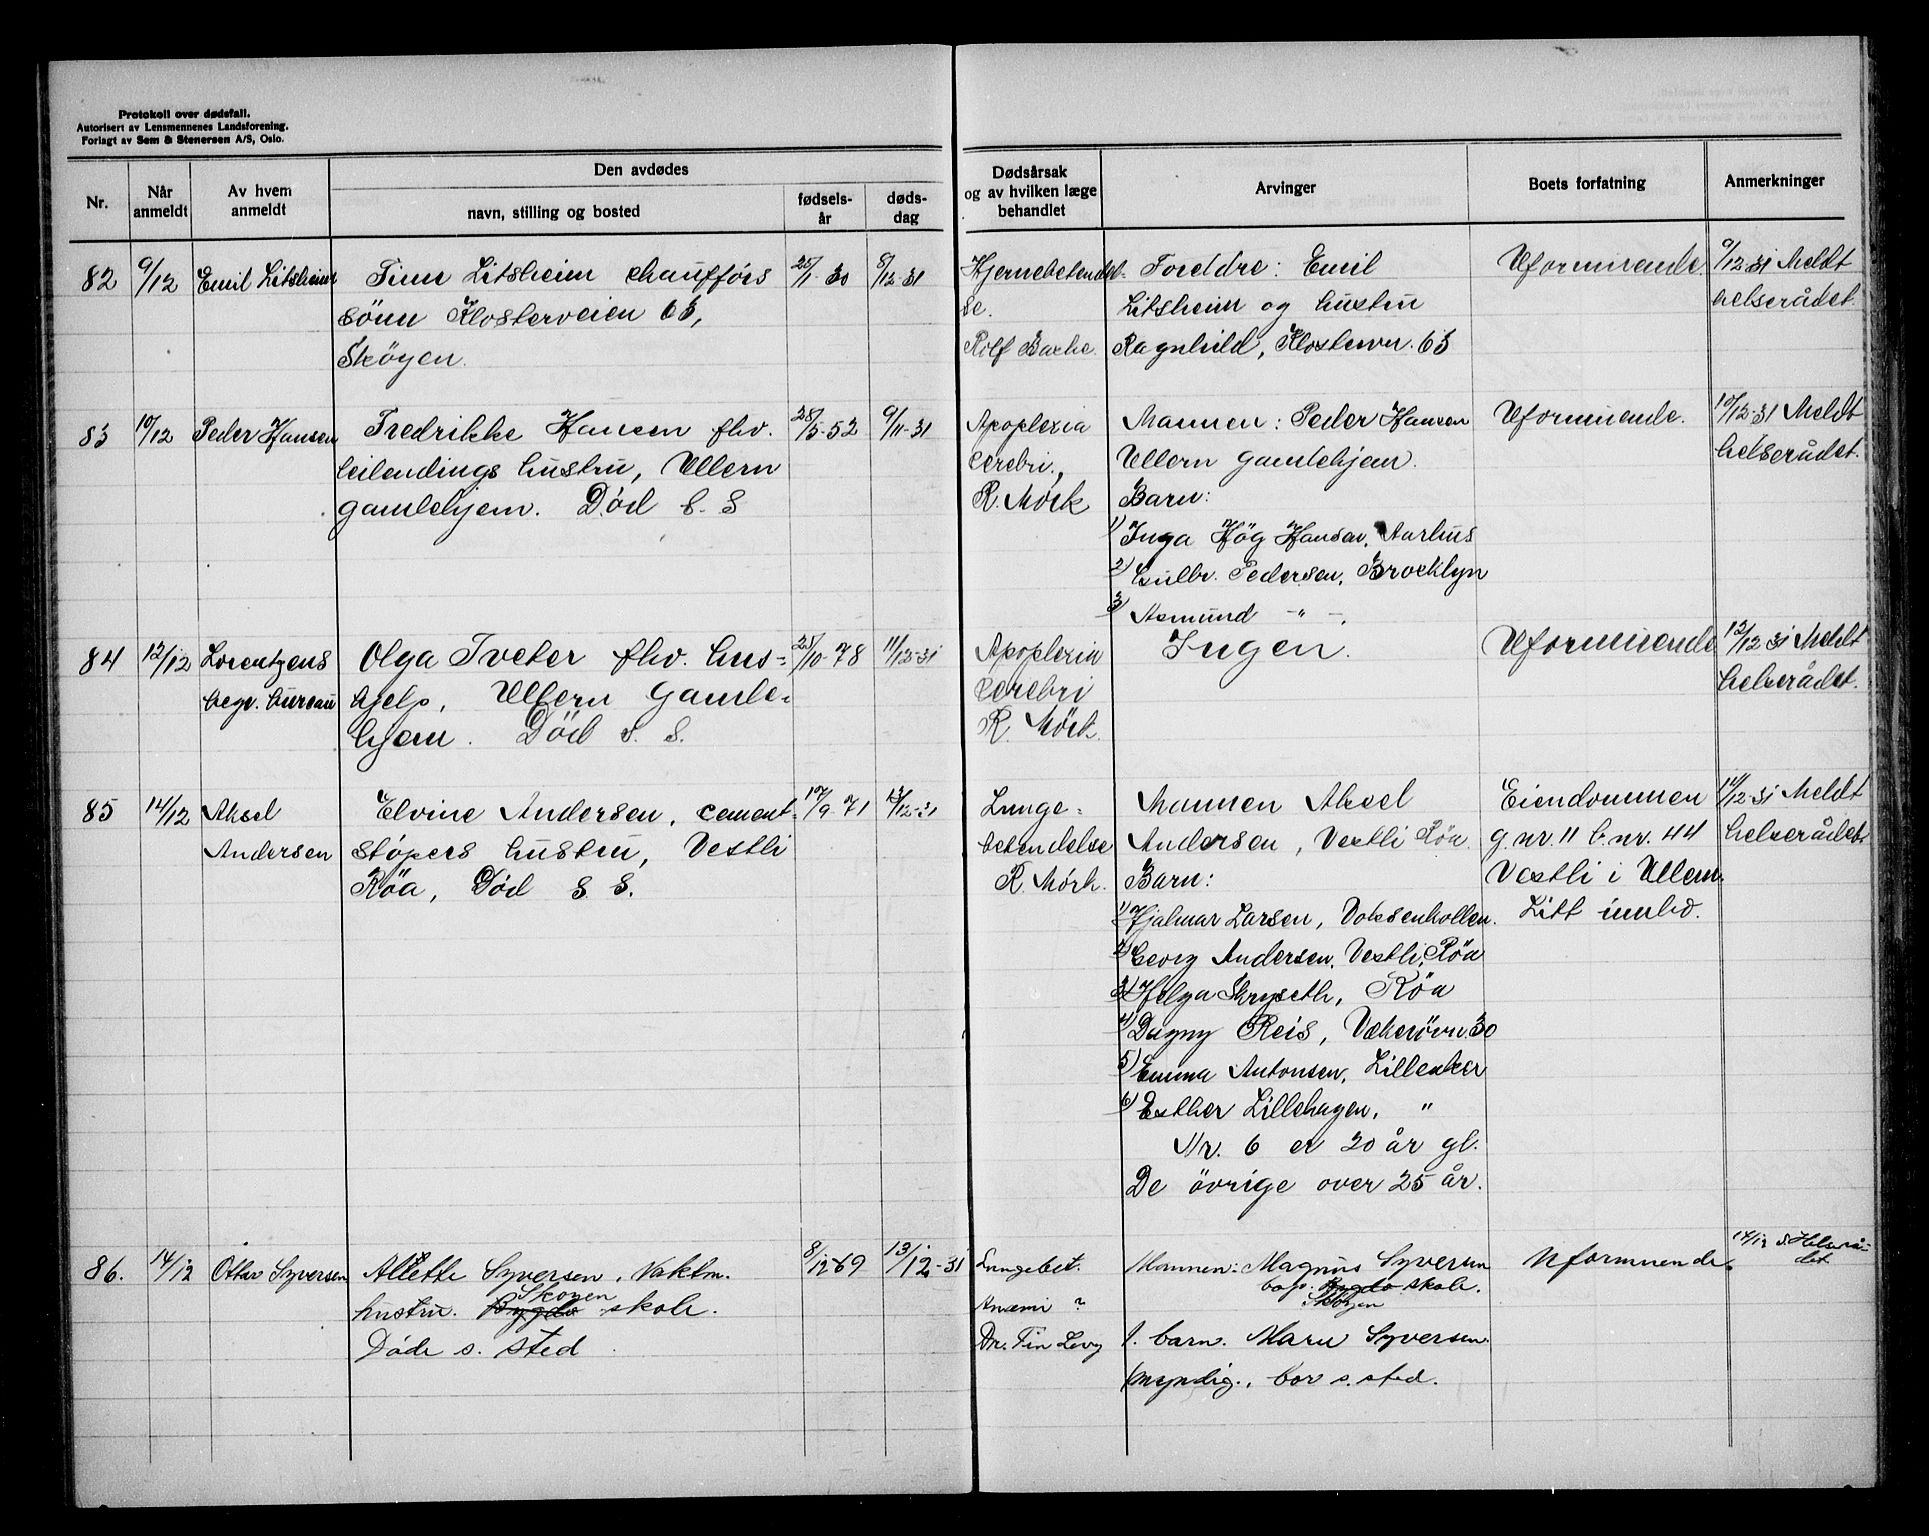 Protokoll over dødsfall.
Autorisert av Lensmennenes Landsforening.
Forlagt av Sem & Stenersen A/S, Oslo.
Nr.
Når anmeldt
Av hvem anmeldt
Den avdødes
navn, stilling og bosted
fødsels-år
døds-dag
Dødsårsak og av hvilken læge behandlet
Arvinger
Boets forfatning
Anmerkninger
82 9/12 Emil Litsheim Finn Litsheim chaufförs 25/1 30 8/12-31 Hjernebetendel- Foreldre: Emil Uformuende 9/12-31 Meldt
sönn Klosterveien 63, se. Litsheim og hustru helserådet.
Sköyen. Rolf Bache. Ragnhild, Klosterv. 63
83 10/12 Peder Hansen Fredrikke Hansen fhv. 28/5-52 9/11-31 Apoplexia Mannen: Peder Hansen Uformuende. 10/12-31 Meldt
leilendings hustru, Ullern cerebri., Ullern gamlehjem. helserådet.
gamlehjem. Död s. S R. Mörk Barn:
1) Inga Hög Hansen, Aarhus
2) Gulbr. Pedersen, Brocklyn
3) Asmund -"-.
84 12/12 Lorentzens Olga Tveter fhv. hus= 25/10-78 11/12-31 Apoplexia Ingen. Uformuende 12/12 31 Meldt
begr. bureau hjelp, Ullern Gamle= cerebri helserådet.
hjem. Död s. S. R. Mörk.
85 14/12 Aksel Elvine Andersen, cement= 17/9-71 13/12-31 Lunge= Mannen Aksel Eiendommen 14/12-31 Meldt
Andersen stöpers hustru, Vestli betendelse Andersen, Vestli Röa. g.nr. 11 b.nr. 44 helserådet.
Röa, Död S. S. R. Mörk. Barn: Vestli i Ullern.
1) Hjalmar Larsen, Voksenkollen. Litt innbo.
2) Georg Andersen, Vestli, Röa
3) Helga Skryseth, Röa
4) Dagny Reis, Vækerövn. 30
5) Emma Antonsen, Lilleaker
6) Esther Lillehagen, "
Nr. 6 er 20 år gl.
De övrige over 25 år.
86. 14/12 Ottar Syversen Allette Syversen, Vaktm. 8/12-69 13/12-31 Lungebet. Mannen: Magnus Syversen Uformuende. 14/12 s. Helserå-
det
hustru. Bygdö Skoyen skole. Anæmi ? Bygdö skole.
Skoyen
Døde s. sted Dr. Fin Levy 1. barn. Marie Syversen
myndig., bor s. sted.